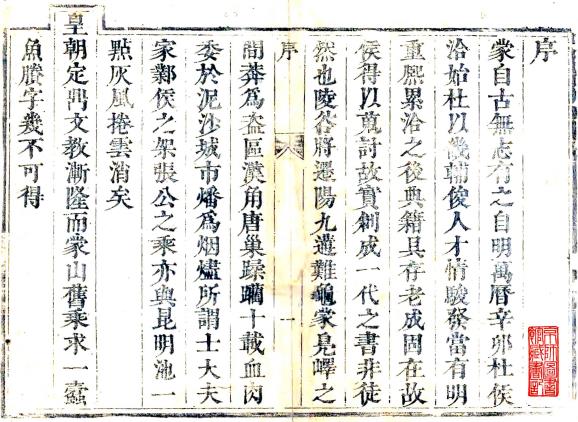 序
蒙自古無志有之自明萬曆辛卯杜侯
洽始杜以畿輔俊人才情駿發當有明
重熙累洽之後典籍具存老成固在故
侯得以蒐討故實剏成一代之書非徒
然也陵谷將遷陽九遘難龜蒙鳧嶧之
序 一
間莽為盜區漢角唐巢蹂躪十載血肉
委於泥沙城市燔為烟燼所謂士大夫
家鄴侯之架張公之乘亦與昆明池一
點灰風捲雲消矣
皇朝定鼎文教漸隆而蒙山舊乘求一蠹
魚賸字幾不可得